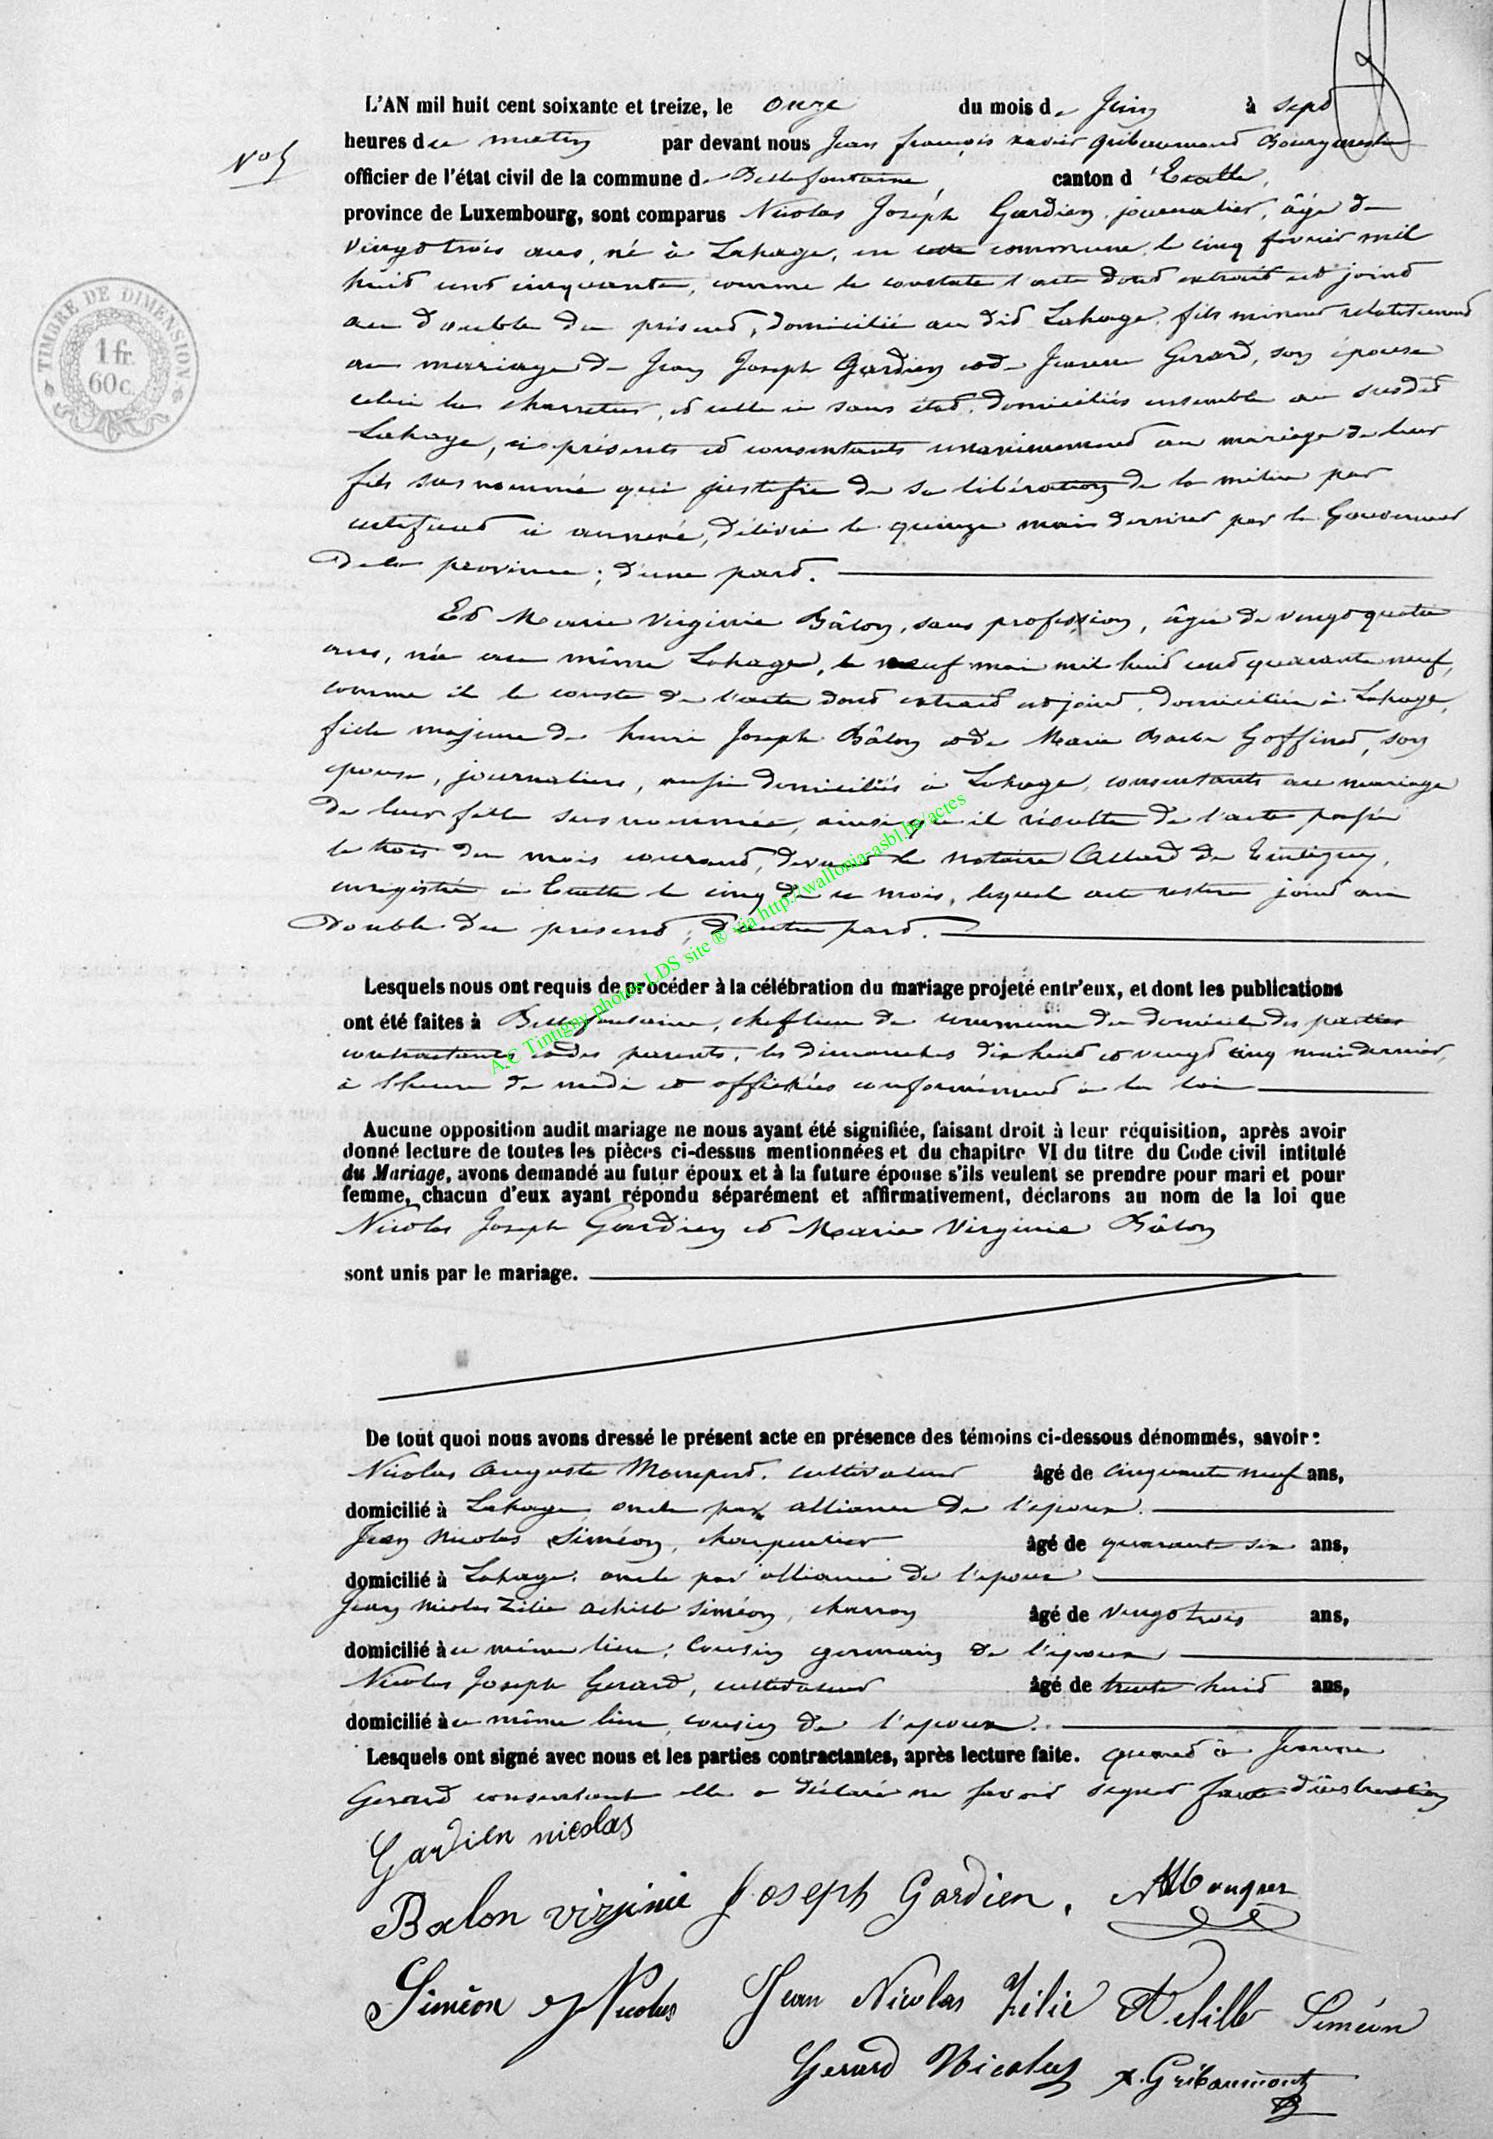 L'AN mil huit cent soixante et treize, le onze du mois de Juin à sept
N° 5
heures du matin par devant nous Jean françois xavier Gribaumont Bourgmestre
officier de l'état civil de la commune de Bellefontaine, canton d'Etalle,
province de Luxembourg, sont comparus Nicolas Joseph Gardien, journalier, âgé de
vingt trois ans, né à Lahage, en cette commune, le cinq février mil
huit cent cinquante, comme le constate l'acte dont extrait est joint
au double du présent, domicilié au dit Lahage, fils mineur relativement
au mariage de Jean Joseph Gardien et de Jeanne Gerard, son épouse
celui là charretier, et celle ci sans état, domiciliés ensemble au susdit
Lahage, ci présents et consentants unanimement au mariage de leur
fils susnommé qui justifie de sa libération de la milice par
certificat ci annexé, délivré le quinze mai dernier par le Gouverneur
de la province ; d'une part.
Et Marie Virginie Bâlon, sans profession, âgée de vingt quatre
ans, née au même Lahage, le neuf mai mil huit cent quarante neuf,
comme il le conste de l'acte dont extrait est joint, domiciliée à Lahage,
fille majeure de henri Joseph Bâlon et de Marie Barbe Goffinet, son
épouse, journaliers, aussi domiciliés à Lahage, consentants au mariage
de leur fille susnommée, ainsi qu'il résulte de l'acte passé
le trois du mois courant, devant le notaire Allard de Tintigny,
enregistré à Etalle le cinq de ce mois, lequel acte restera joint au
Double du présent ; d'autre part.
Lesquels nous ont requis de procéder à la célébration du mariage projeté entr'eux, et dont les publications
ont été faites à Bellefontaine, chef lieu de commune du domicile des parties
contractantes et des parents, les dimanches dix huit et vingt cinq mai dernier,
à l'heure de midi et affichées conformément à la loi
Aucune opposition audit mariage ne nous ayant été signifiée, faisant droit à leur réquisition, après avoir
donné lecture de toutes les pièces ci-dessus mentionnées et du chapitre VI du titre du Code civil intitulé
du Mariage, avons demandé au futur époux et à la future épouse s'ils veulent se prendre pour mari et pour
femme, chacun d'eux ayant répondu séparément et affirmativement, déclarons au nom de la loi que
Nicolas Joseph Gardien et Marie Virginie Bâlon
sont unis par le mariage.
De tout quoi nous avons dressé le présent acte en présence des témoins ci-dessous dénommés, savoir :
Nicolas Auguste cultivateur âgé de cinquante neuf ans,
domicilié à Lahage, oncle par alliance de l'époux.
Jean Nicolas Siméon, charpentier âgé de quarante six ans,
domicilié à Lahage, oncle par alliance de l'époux
Jean Nicolas Zélie Achille Siméon, charron âgé de vingt trois ans,
domicilié à ce même lieu, Cousin germain de l'époux
Nicolas Joseph Gerard, cultivateur âgé de trente huit ans,
domicilié à ce même lieu, cousin de l'époux.
Lesquels ont signé avec nous et les parties contractantes, après lecture faite. quand à Jeanne
Gerard consentante elle a déclaré ne savoir signer faute d'instruction
Gardien nicolas
Balon virginie Joseph Gardien.
Siméon J Nicolas Jean Nicolas Zélie Achille Siméon
Gerard Nicolas X. Gribaumont
TIMBRE DE DIMENSION
1 fr.
60 c.
A.C Tintigny photos LDS site ® via http://wallonia-asbl.be/actes